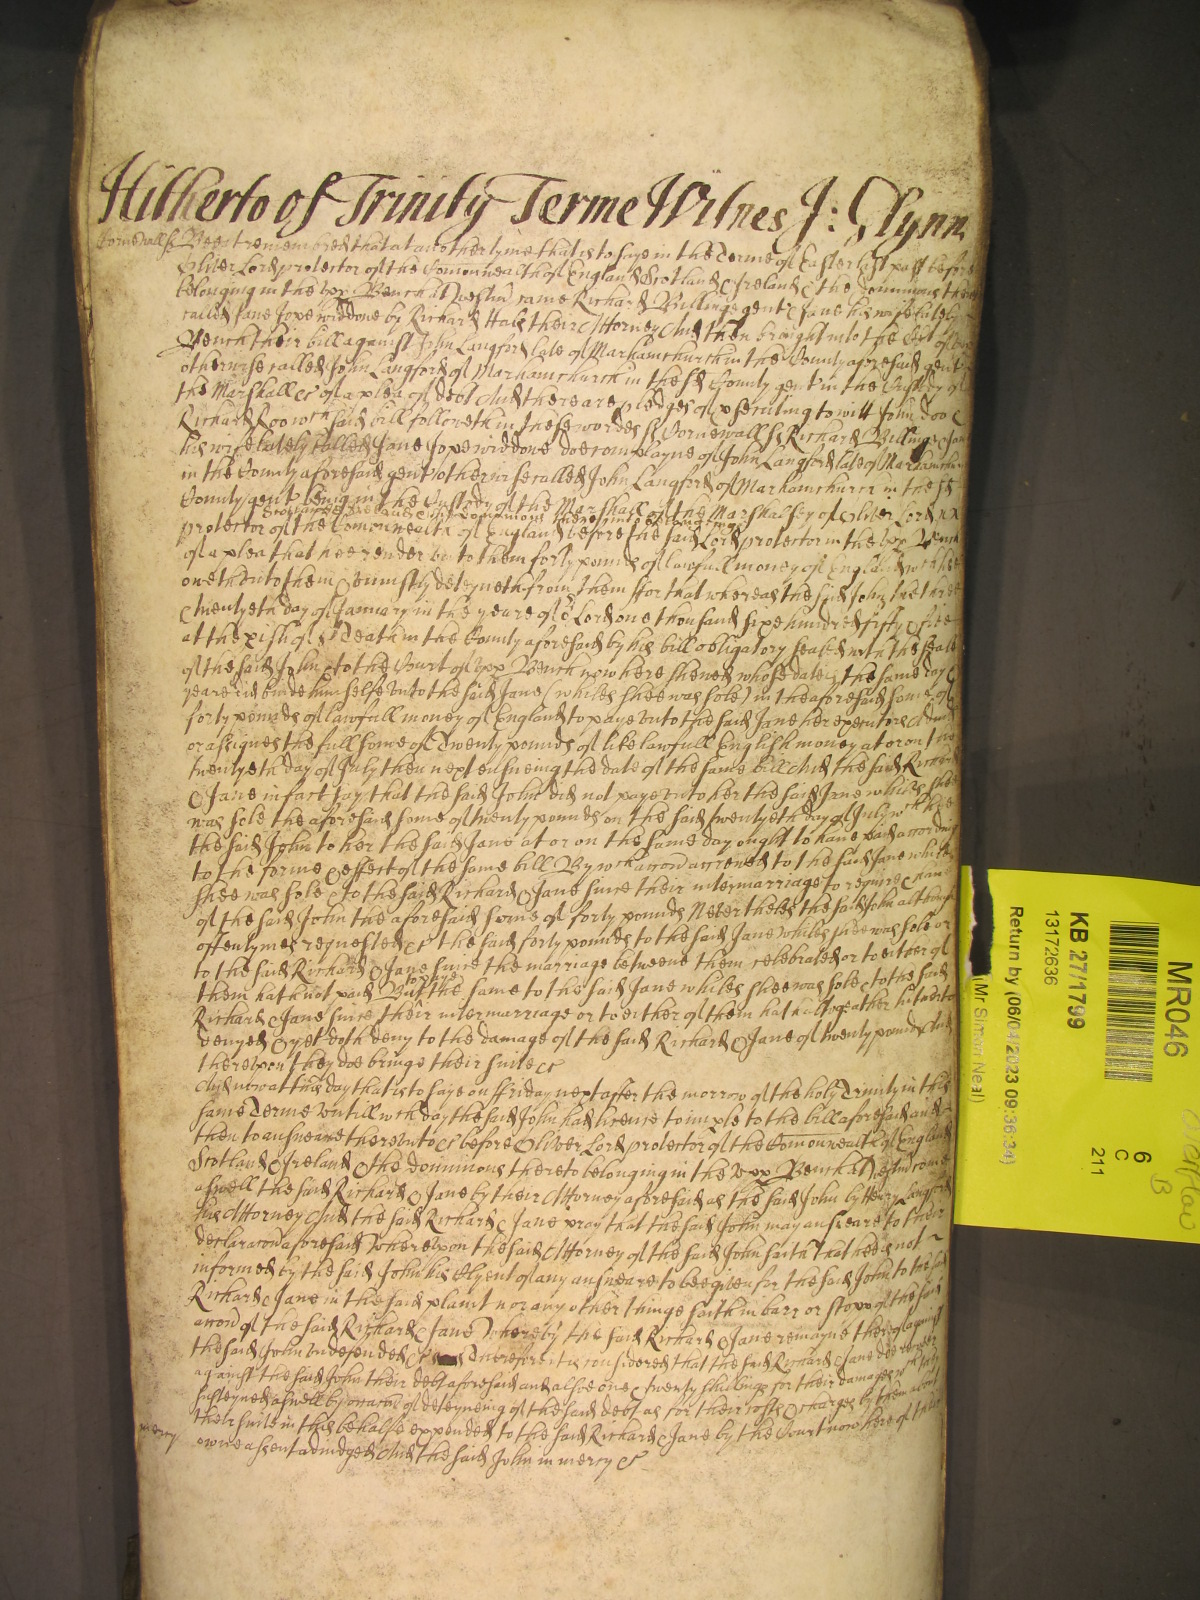 Hitherto of Trinity Terme Witnes J: Glynn
Cornewall ss Bee it remembred that at another tyme that is to saye in the Terme of Easter last past before
Oliver Lord protector of the Comonwealth of England Scotland & Ireland & the dominions there
belonging in the upp Bench at Westm came Richard Billinge gent & Jane his wife lately
called Jane Jope widdowe by Richard Hals their Attorney And then brought into the Cort of upp
Bench their bill against John Langford late of Marhamchurch in the County aforesaid gent
otherwise called John Langford of Marhamchurch in the sd County gent in the Custody of
the Marshall &c of a plea of debt And there are pledges of psecuting to witt John Doo &
Richard Roo wch said bill followeth in these wordes ss Cornewall ss Richard Billinge & Jane
his wife lately called Jane Jope widdowe doe complayne of John Langford late of Marhamchurch
in the County aforesaid gent otherwise called John Langford of Marhamchurch in the sd
County gent being in the Custody of the Marshall of the Marshalsey of Oliver Lord
Scotland & Ireland & the dominions thereunto belonging
protector of the Comonwealth of England before the said Lord protector in the upp Bench
of a plea that hee render unto them forty pounds of lawfull money of England wch hee
oweth unto them & uniustly deteyneth from them ffor that whereas the said John the three
& twentyeth day of January in the yeare of or Lord one thousand sixe hundred fifty & five
at the pish of St Teath in the County aforesaid by his bill obligatory sealed with the seale
of the said John & to the Court of upp Bench now here shewed whose date is the same day &
yeare did binde himselfe unto the said Jane (whiles shee was sole) in the aforesaid some of
forty pounds of lawfull money of England to paye unto the said Jane her executors Admrs
or assignes the full some of Twenty pounds of like lawfull English money at or on the
twentyeth day of July then next ensueing the date of the same bill And the said Richard
& Jane in fact say that the said John did not paye unto her the said Jane whiles shee
was sole the aforesaid some of twenty pounds on the said twentyeth day of July wch hee
the said John to her the said Jane at or on the same day ought to have paid according
to the forme & effect of the same bill By wch accon accrewed to the said Jane whiles
shee was sole & to the said Richard & Jane since their intermarriage to require & have
of the said John the aforesaid some of forty pounds Neverthelesse the said John although
oftentymes requested &c the said forty pounds to the said Jane whiles shee was sole or
to the said Richard & Jane since the marriage betweene them celebrated or to either of
to pay
them hath not paid But the same to the said Jane whiles shee was sole & to the said
Richard & Jane since their intermarriage or to either of them hath altogeather hitherto
denyed & yet doth deny to the damage of the said Richard & Jane of twenty pounds And
thereupon they doe bringe their suite &c
And now at this day that is to saye on ffriday next after the morrow of the holy Trinity in this
same Terme untill wch day the said John had licence to imple to the bill aforesaid and
then to answeare thereunto &c before Oliver Lord protector of the Comonwealth of England
Scotland & Ireland & the dominions thereto belonging in the upp Bench at Westm come
aswell the said Richard & Jane by their Attorney aforesaid as the said John by Henry Langford
his Attorney And the said Richard & Jane pray that the said John may answeare to their
declaracon aforesaid Whereupon the said Attorney of the said John saith That hee is not
informed by the said John his Clyent of any answeare to bee given for the said John to the said
Richard & Jane in the said plaint nor any other thinge saith in barr or stopp of the said
accon of the said Richard & Jane Whereby the said Richard & Jane remayne thereof against
the said John undefended &c Therefore it is considered that the said Richard & Jane doe recover
against the said John their debt aforesaid and alsoe one & twenty shillings for their damages wch they
susteyned aswell by occacon of deteyneing of the said debt as for their costs & charges by them about
their suite in this behalfe expended to the said Richard & Jane by the Court now here of their
mercy
owne assent adiudged And the said John in mercy &c
MR046
KB 27/1799
13172636
Return by (06/04/2023 09:36:34)
(Mr Simon Neal)
6
C
211